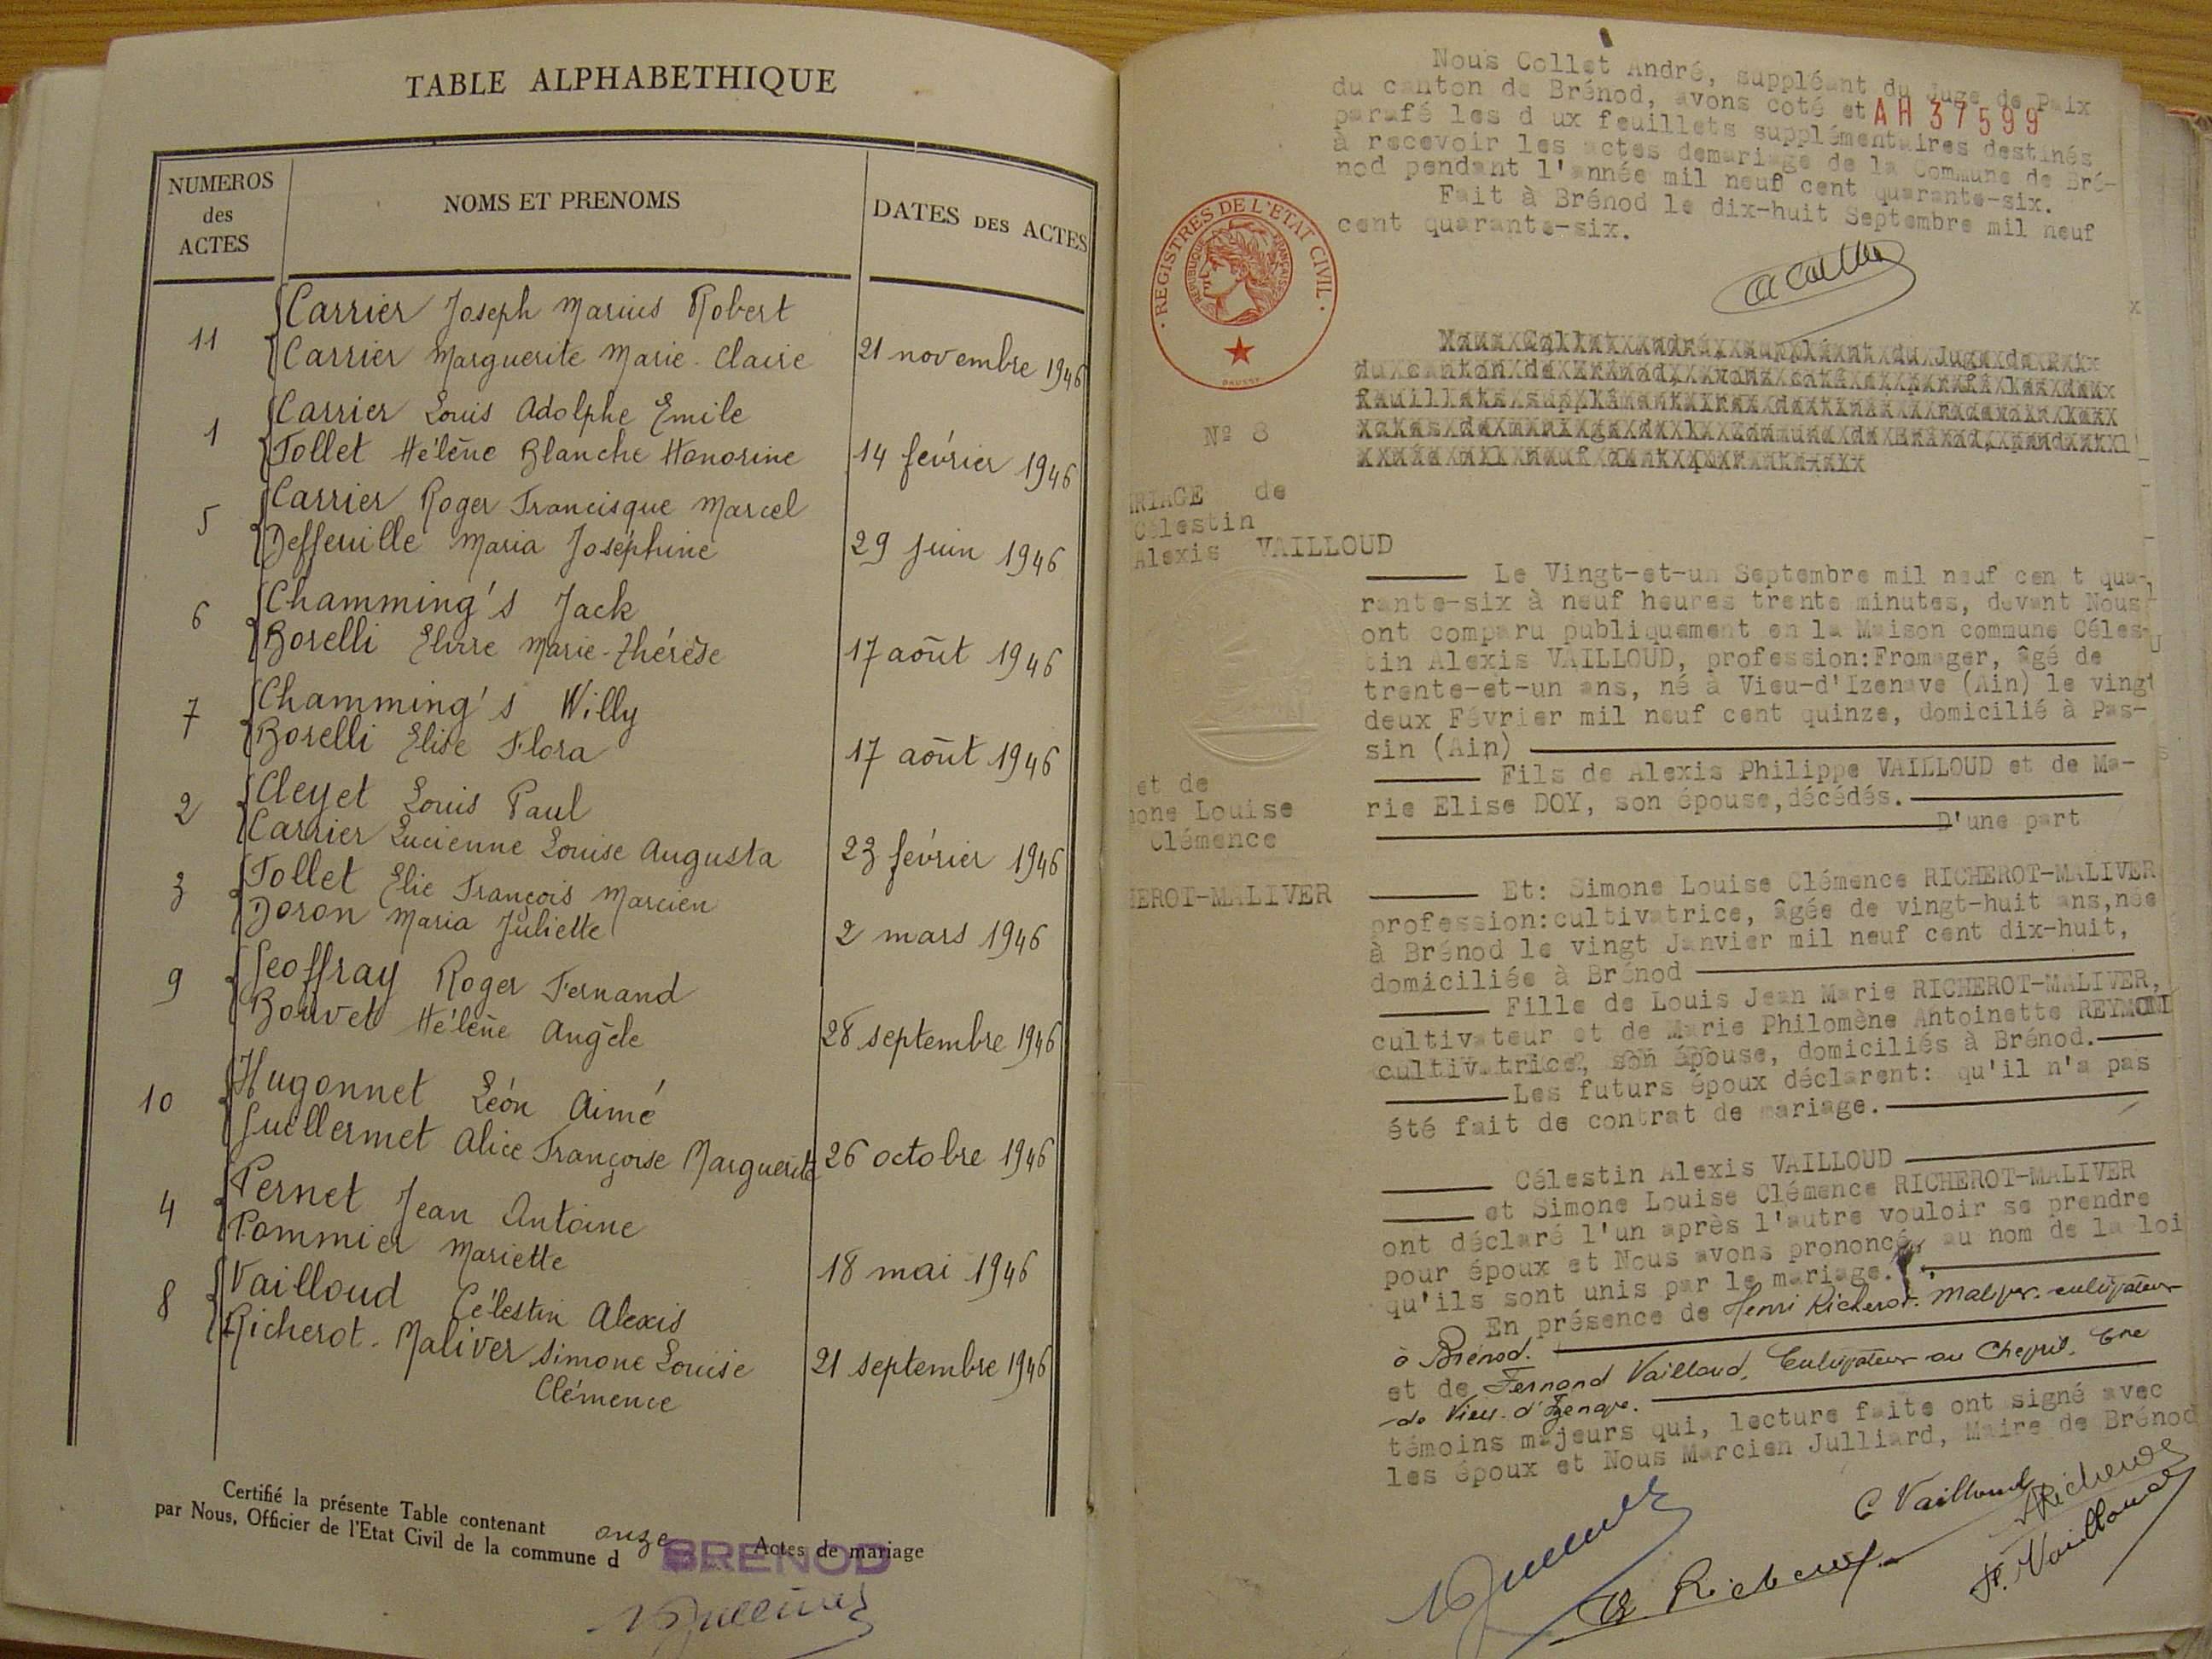 TABLE ALPHABETHIQUE
NUMEROS
des
ACTES
NOMS ET PRENOMS
DATES DES ACTES
Carrier Joseph Marius Robert
11
Carrier Marguerite Marie-Claire
21 novembre 1946
Carrier Louis Adolphe Emile
1
Tollet Hélène Blanche Honorine
14 février 1946
Carrier Roger Francisque Marcel
5
Deffeuille Maria Joséphine
29 juin 1946
Chamming's Jack
6
Borelli Elvire Marie-Thérèse
17 août 1946
Chamming's Willy
7
Borelli Elise Flora
17 août 1946
Cleyet Louis Paul
2
Carrier Lucienne Louise Augusta
23 février 1946
Tollet Elie François Marcien
3
Doron Maria Juliette
2 mars 1946
Geoffray Roger Fernand
9
Bouvet Hélène Angèle
28 septembre 1946
Hugonnet Léon Aimé
10
Guillermet Alice Françoise Marguerite
26 octobre 1946
Pernet Jean Antoine
4
Pommier Mariette
18 mai 1946
Vailloud Célestin Alexis
8
Richerot-Maliver Simone Louise
Clémence
21 septembre 1946
Certifié la présente Table contenant onze Actes de mariage
par Nous, Officier de l'Etat Civil de la commune d BRENOD
Nous Collet André, suppléant du Juge de Paix
du canton de Brénod, avons coté et
AH 37599
parafé les d ux feuillets supplémentaires destinés
à recevoir les actes demariage de la Commune de Bré-
nod pendant l'année mil neuf cent quarante-six.
Fait à Brénod le dix-huit Septembre mil neuf
cent quarante-six.
REGISTRES DE L'ETAT CIVIL
REPUBLIQUE FRANÇAISE
Nous Collet André, suppléant du Juge de Paix
du canton de Brénod, avons coté et parafé les deux
feuillets supplémentaires destinés à recevoir les
actes de mariage de la Commune de Brénod, pendant l
année mil neuf cent quarante-six
Nº 8
RIAGE de
Célestin
Alexis VAILLOUD
Le Vingt-et-un Septembre mil neuf cen t qua-
rante-six à neuf heures trente minutes, devant Nous
ont comparu publiquement en la Maison commune Céles-
tin Alexis VAILLOUD, profession:Fromager, âgé de
trente-et-un ans, né à Vieu-d'Izenave (Ain) le vingt
deux Février mil neuf cent quinze, domicilié à Pas-
sin (Ain)
Fils de Alexis Philippe VAILLOUD et de Ma-
rie Elise DOY, son épouse,décédés.
D'une part
et de
one Louise
Clémence
EROT-MALIVER
Et: Simone Louise Clémence RICHEROT-MALIVER
profession:cultivatrice, âgée de vingt-huit ans,née
à Brénod le vingt Janvier mil neuf cent dix-huit,
domiciliée à Brénod
Fille de Louis Jean Marie RICHEROT-MALIVER,
cultivateur et de Marie Philomène Antoinette REYMOND
cultivatrice, son épouse, domiciliés à Brénod.
Les futurs époux déclarent: qu'il n'a pas
été fait de contrat de mariage.
Célestin Alexis VAILLOUD
et Simone Louise Clémence RICHEROT-MALIVER
ont déclaré l'un après l'autre vouloir se prendre
pour époux et Nous avons prononcé, au nom de la loi
qu'ils sont unis par le mariage.
En présence de Henri Richerot-Maliver. cultivateur
à Brénod.
et de Fernand Vailloud, Cultivateur au Chevril, Cne
de Vieu-d'Izenave.
témoins majeurs qui, lecture faite ont signé avec
les époux et Nous Marcien Julliard, Maire de Brénod
C Vailloud
F. Vailloud